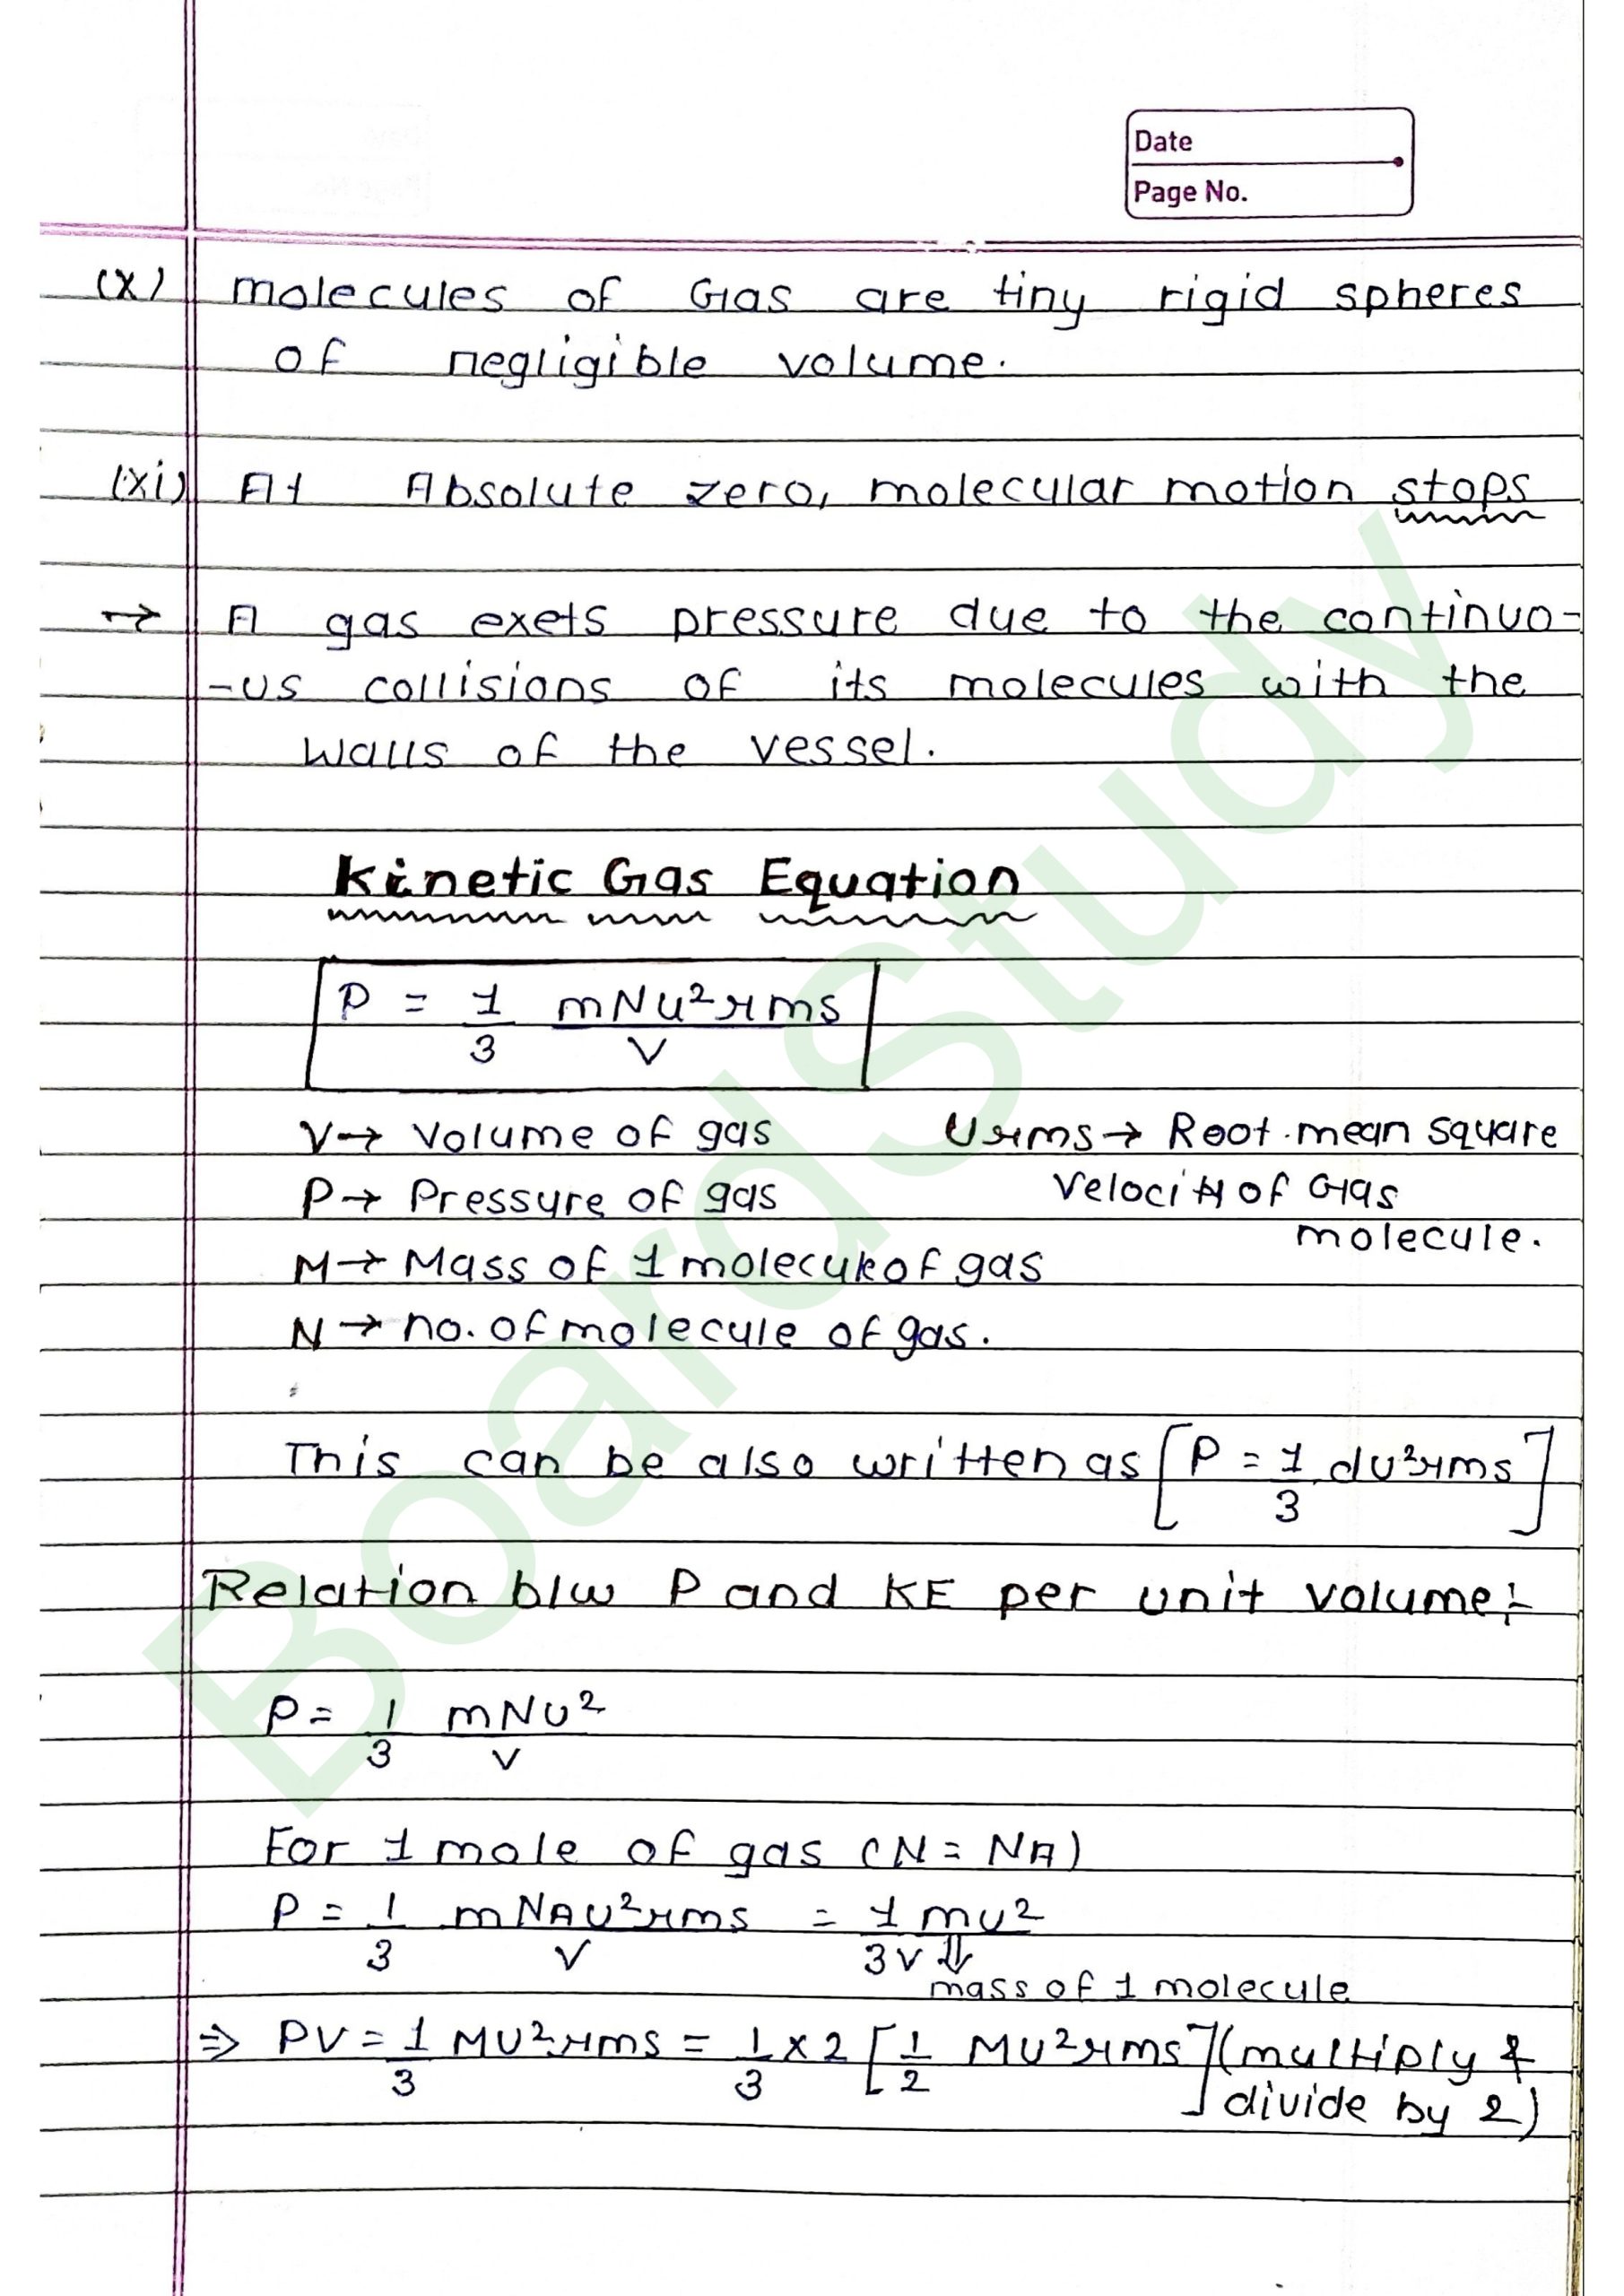 Date
Page No.
(x) molecules of Gas are tiny rigid spheres
of negligible volume.
(xi) At Absolute zero, molecular motion stops
→ A gas exets pressure due to the continuo-
-us collisions of its molecules with the
walls of the vessel.
Kinetic Gas Equation
P = 1/3 mNu²rms/V
V→ Volume of gas Urms→ Root mean square
P→ Pressure of gas Velocity of Gas
molecule.
M→ Mass of 1 molecule of gas
N→ no. of molecule of gas.
This can be also written as [P = 1/3 du²rms]
Relation b/w P and KE per unit volume:-
P = 1/3 mNu²/V
For 1 mole of gas (N = NA)
P = 1/3 mNAU²rms/V = 1mu²/3V
⇓
mass of 1 molecule
⇒ PV = 1/3 MU²rms = 1/3 x 2 [1/2 MU²rms] (multiply &
divide by 2)
BoardStudy